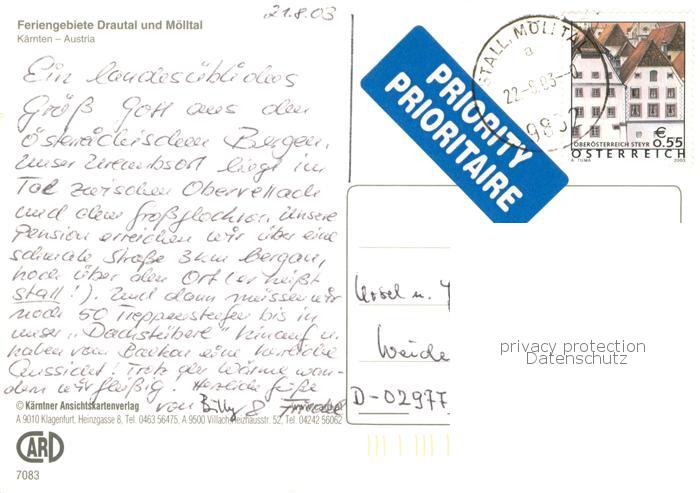 21.8.03
Feriengebiete Drautal und Mölltal
Kärnten – Austria
Ein landesübliches
Grüß Gott aus den
österreichischen Bergen.
Unser Urlaubsort liegt im
Tal zwischen Obervellach
und dem Großglockner. Unsere
Pension erreichen wir über eine
schmale Straße 3km bergan,
hoch über dem Ort (er heißt
Stall!). Und dann müssen wir
noch 50 Treppenstufen bis in
unser "Dachstüberl" hinauf u.
haben vom Balkon eine herrliche
Aussicht! Trotz der Wärme wan-
dern wir fleißig! Herzliche Grüße
von Billy &
© Kärntner Ansichtskartenverlag
A 9010 Klagenfurt, Heinzgasse 8, Tel. 0463 56475, A 9500 Villach, Heizhausstr. 52, Tel. 04242 56062
CARD
7083
PRIORITY
PRIORITAIRE
STALL, MÖLLTAL
a
22.-8.03-0
9832
€
0.55
OBERÖSTERREICH STEYR
ÖSTERREICH
A. TUMA 2003
u.
Weide
D-02977
privacy protection
Datenschutz